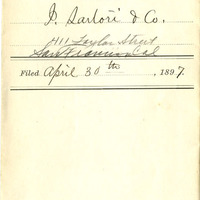 J. Sartori & Co.
411 Taylor Street
San Francisco Cal
Filed April 30th, 1897.